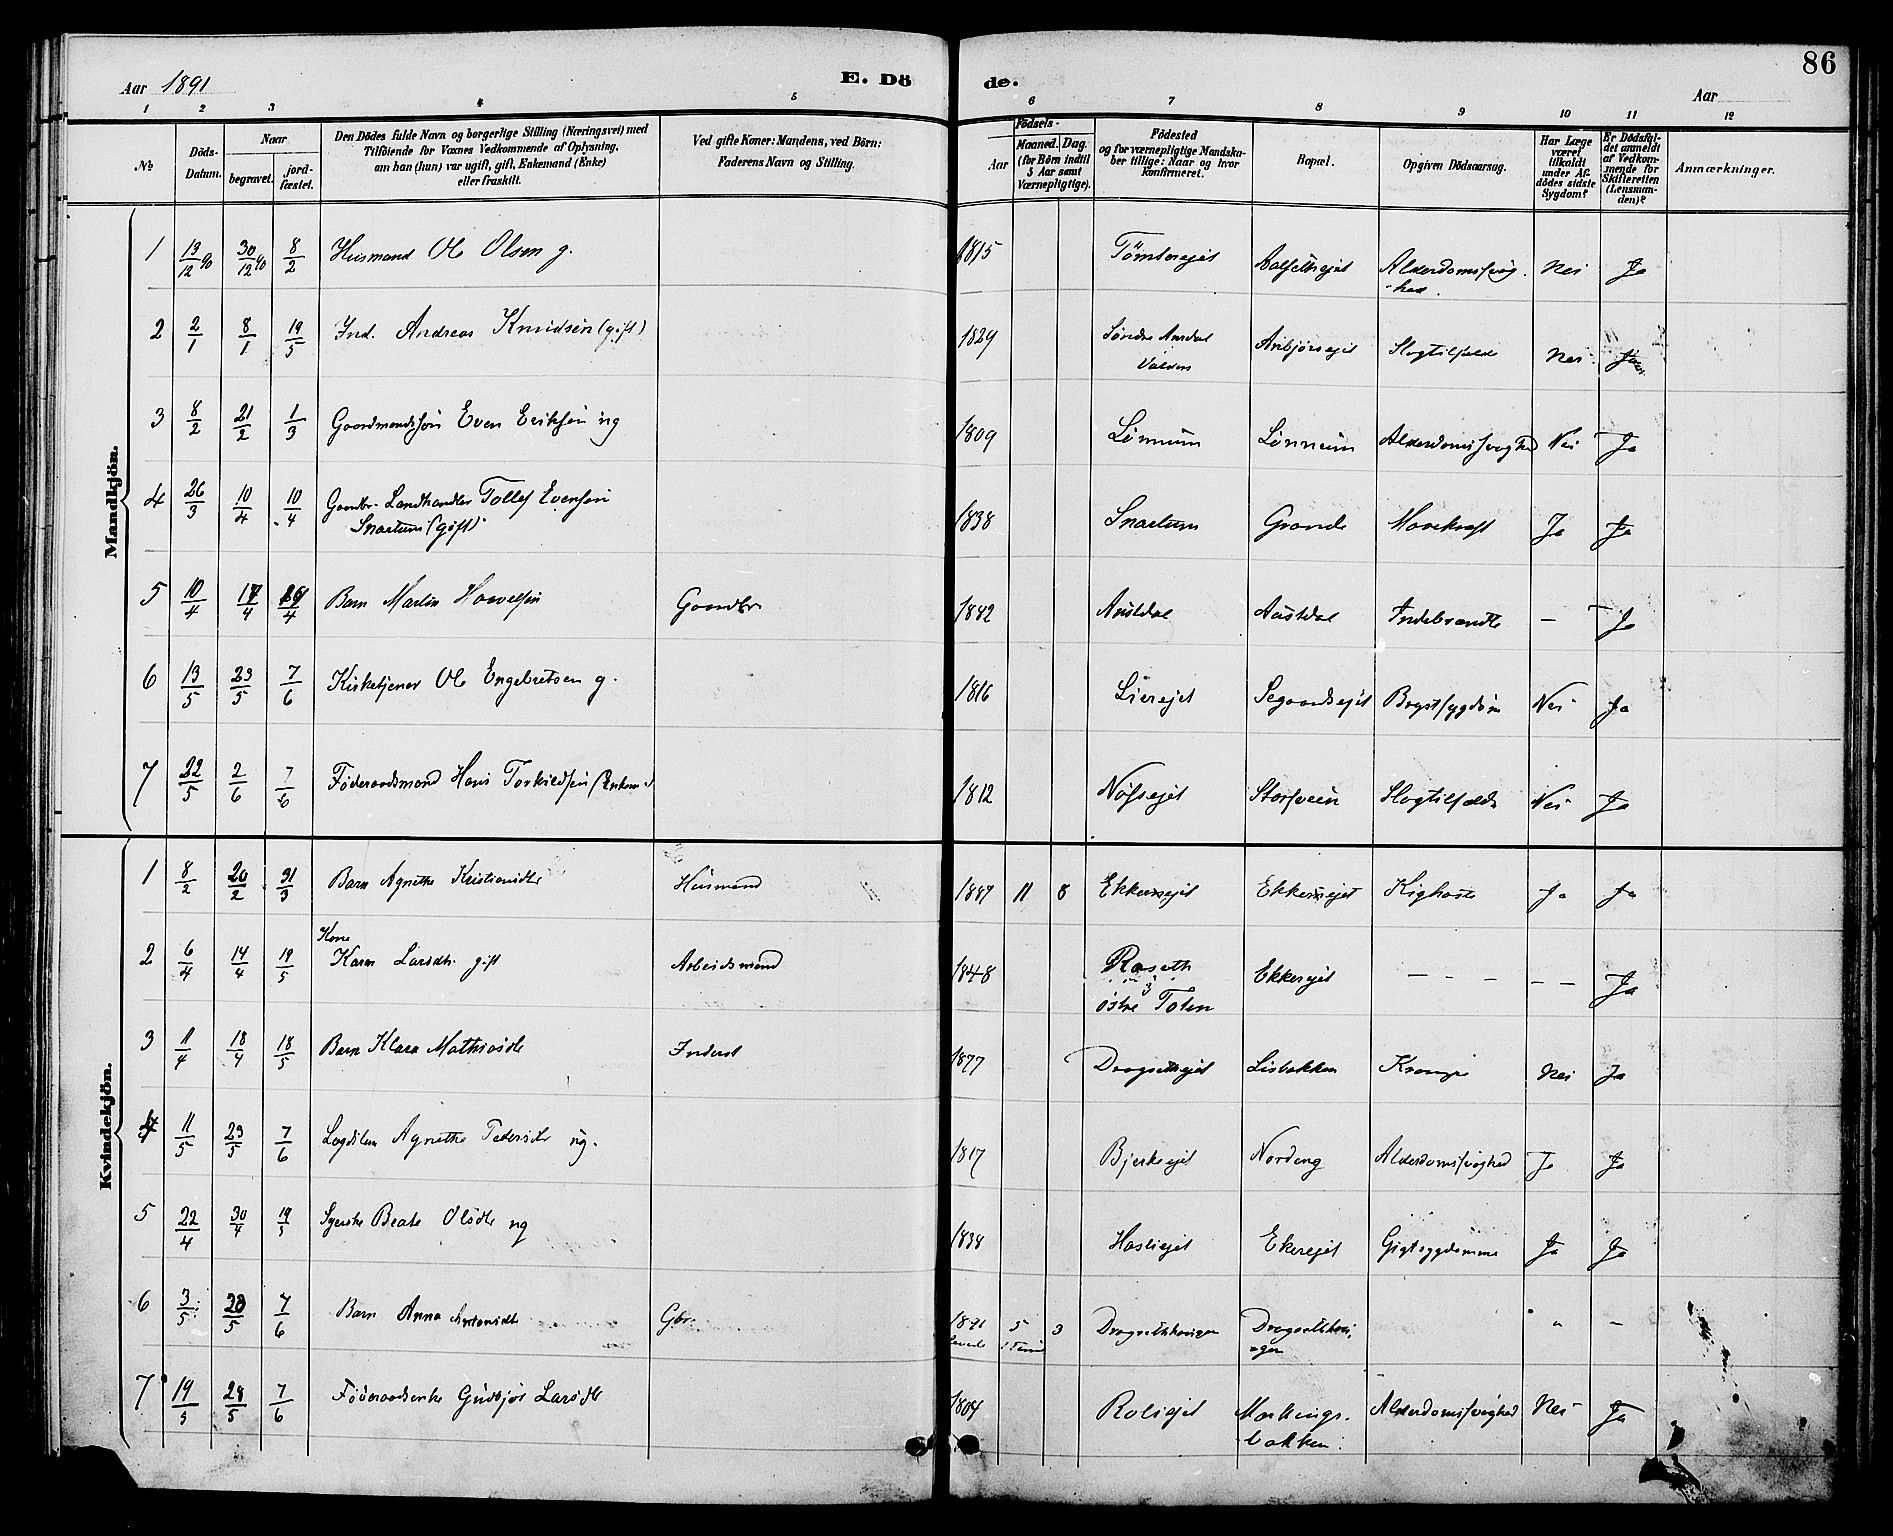 86
Aar 1891 E. Dö de. Aar
1 2 3 4 5 6 7 8 9 10 11 12
No. Döds-Datum. Naar begravet. jordfæstet. Den Dödes fulde Navn og borgerlige Stilling (Næringsvei) med Tilföiende for Voxnes Vedkommende af Oplysning, om han (hun) var ugift, gift, Enkemand (Enke) eller fraskilt. Ved gifte Koner: Mandens, ved Börn: Faderens Navn og Stilling. Födsels- Aar Maaned. Dag. (for Börn indtil 5 Aar samt Værnepligtige). Födested og for værnepligtige Mandskaber tillige: Naar og hvor konfirmeret. Bopæl. Opgiven Dödsaarsag. Har Læge været tilkaldt under Afdödes sidste Sygdom? Er Dödsfaldet anmeldt af Vedkommende for Skifteretten (Lensmanden)? Anmærkninger.
Mandkjön.
1 19/12 90 30/12 90 8/2 Husmand Ole Olsen g. 1815 Tömtereiet Alderdomssvaghed. Nei Ja
2 2/1 8/1 19/5 Ind. Andreas Knudsen (gift) 1829 Søndre Aurdal Valders Slagtilfælde Nei
3 8/2 21/2 1/3 Gaardmandssøn Even Eriksen ug 1809 Lønnum Lønneim Alderdomssvaghed Nei Ja
4 26/3 10/4 10/4 Gaardbr. Landhandler Tollef Evensen Snartum (gift) 1838 Snartum Grande Mavekræft Ja Ja
5 10/4 17/4 /4 Barn Martin Haavelsen Gaardbr 1882 Austdal Austdal Indebrændte — Ja
6 13/5 23/5 7/6 Kirketjener Ole Engebretsen g. 1816 Liereiet Segaardseiet Brystsygdom Nei Ja
7 22/5 2/6 7/6 Føderaadsmand Hans Torkildsen (Enkem.) 1812 Nøsseiet Storsveen Slagtilfælde Nei Ja
Kvindekjön.
1 8/2 20/2 31/3 Barn Agnethe Kristiansdtr Husmand 1887 11 8 Ekkerneiet Ekkerneiet Kighoste Ja Ja
2 6/4 14/4 19/5 Kone Karen Larsdtr. gift Arbeidsmand 1848 Roseth i østre Toten Ekkereiet — — — — — Ja
3 11/4 18/4 18/5 Barn Klara Mathiasdtr Inderst 1877 Dragsetheiet Lisbakken Krampe Nei Ja
4 11/5 23/5 7/6 Lægdslem Agnethe Pedersdtr ug. 1817 Bjerkeeiet Nordeng Alderdomssvaghed Ja Ja
5 22/4 30/4 19/5 Syerske Beate Olsdtr ug 1838 Haslieiet Ekereiet Gigtsygdomme Ja Ja
6 3/5 23/5 7/6 Barn Anna Antonsdtr Gbr. 1891 levede 5 1 Time 3 Dragsethhougen Dragsethhougen " —
7 19/5 28/5 7/6 Føderaadsenke Gudbjør Larsdtr 1804 Rolieiet bakken. Alderdomssvaghed Nei Ja